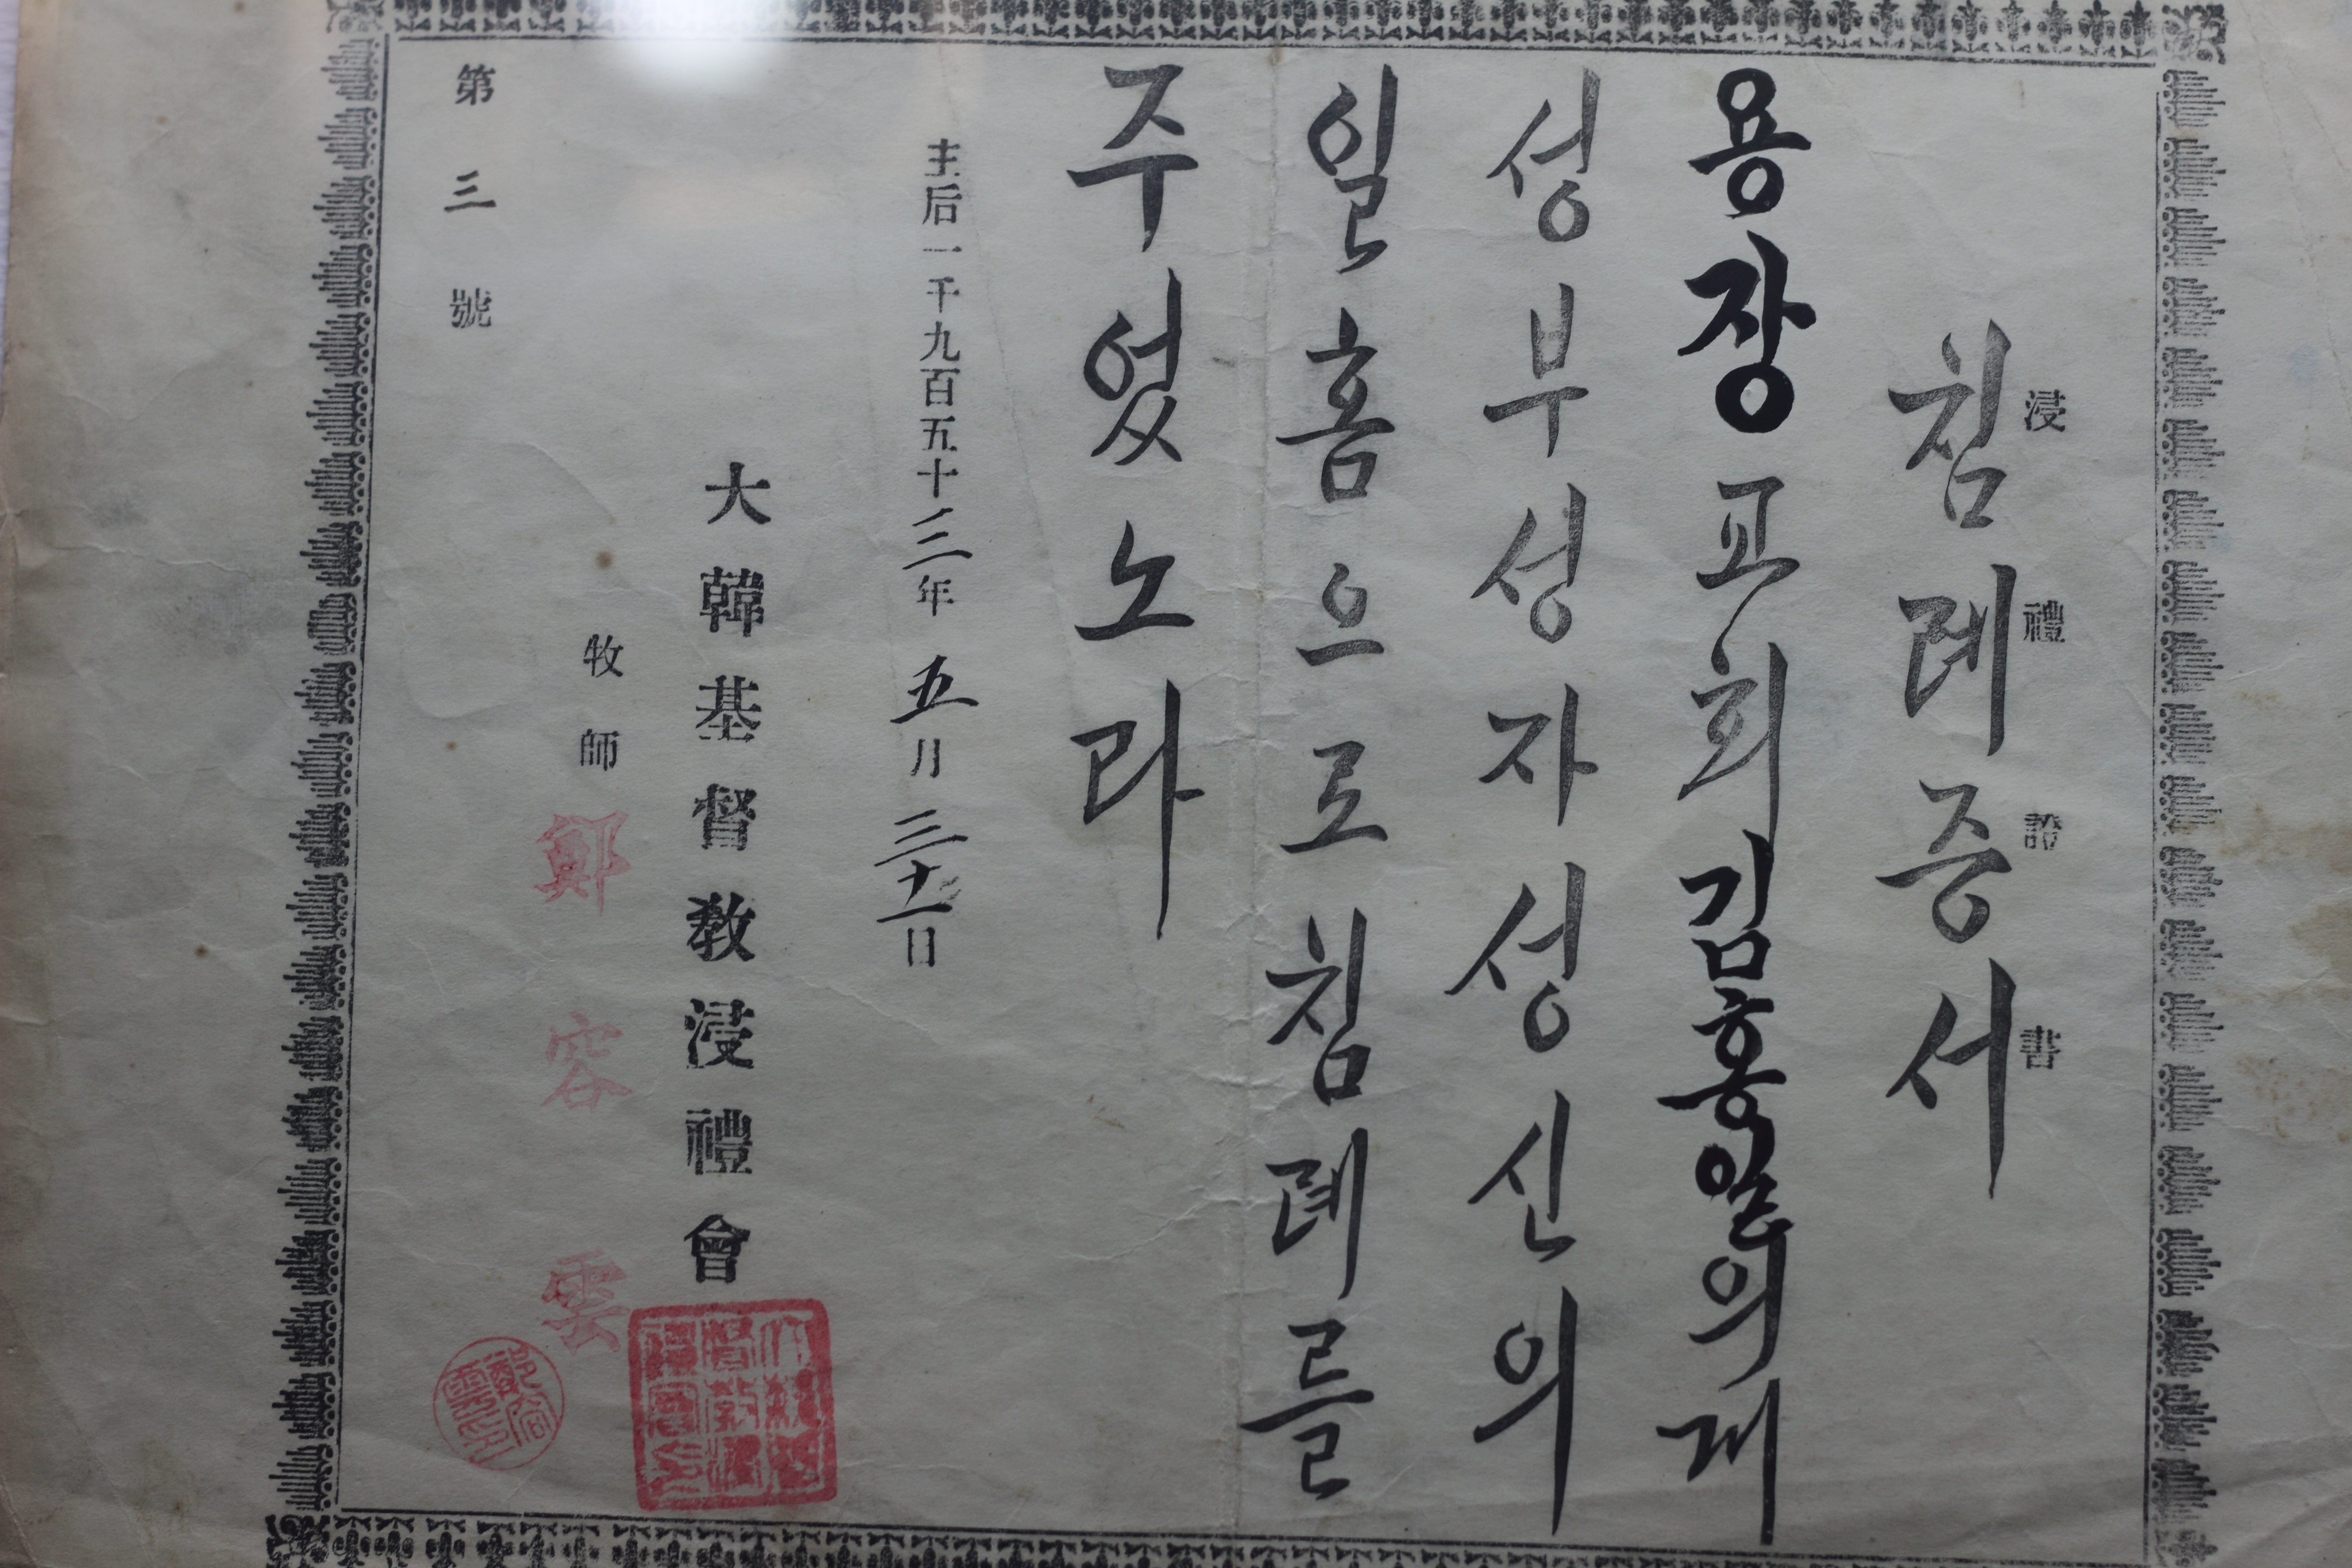 浸禮證書
침례증서
용장교회김홍일의게
성부성자성신의
일홈으로침례를
주엇노라
主后一千九百五十三年五月三十一日
大韓基督敎浸禮會
牧師鄭容雲
第三號